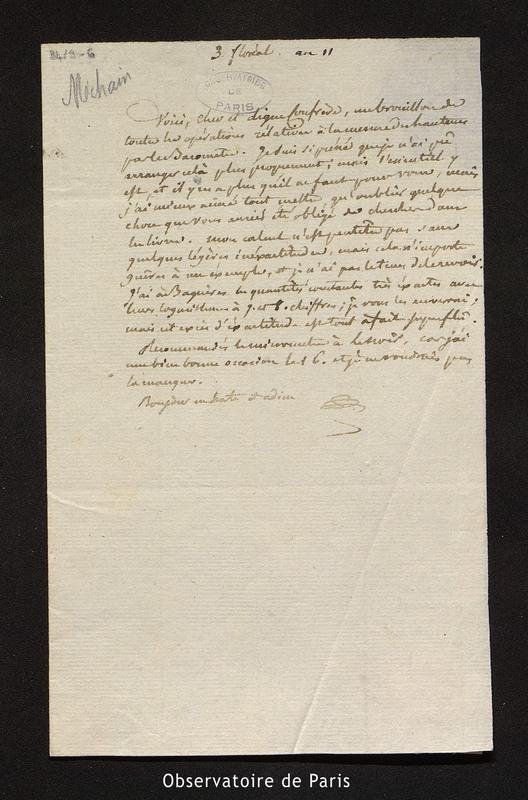 3. floréal. an 11
B4/9-6
Méchain
OBSERVATOIRE
DE
PARIS
Voici, cher et digne confrère, un brouillon de
toutes les opérations rélatives à la mesure des hauteurs
par les Baromètres. Je suis si pressé que je n'ai pu
arranger celà plus proprement; mais l'essentiel y
est, et il y en a plus qu'il ne faut pour vous, mais
j'ai mieux aimé tout mettre, qu'oublier quelque
chose que vous auriez été obligé de chercher dans
les livres. mon calcul n'est peutêtre pas sans
quelques légères inexactitudes, mais cela n'importe
guères à un exemple, et je n'ai pas le tems de le revoir.
J'ai à Bagnères les quantités constantes très exactes avec
leurs logarithmes à 7 et 8. chiffres; je vous les enverrai;
mais cet excès d'exactitude est tout à fait superflu.
Recommandés le micromètre à Lenoir, car j'ai
une bien bonne occasion le 16. et je ne voudrais pas
la manquer.
Bonjour en hate et adieu
Observatoire de Paris